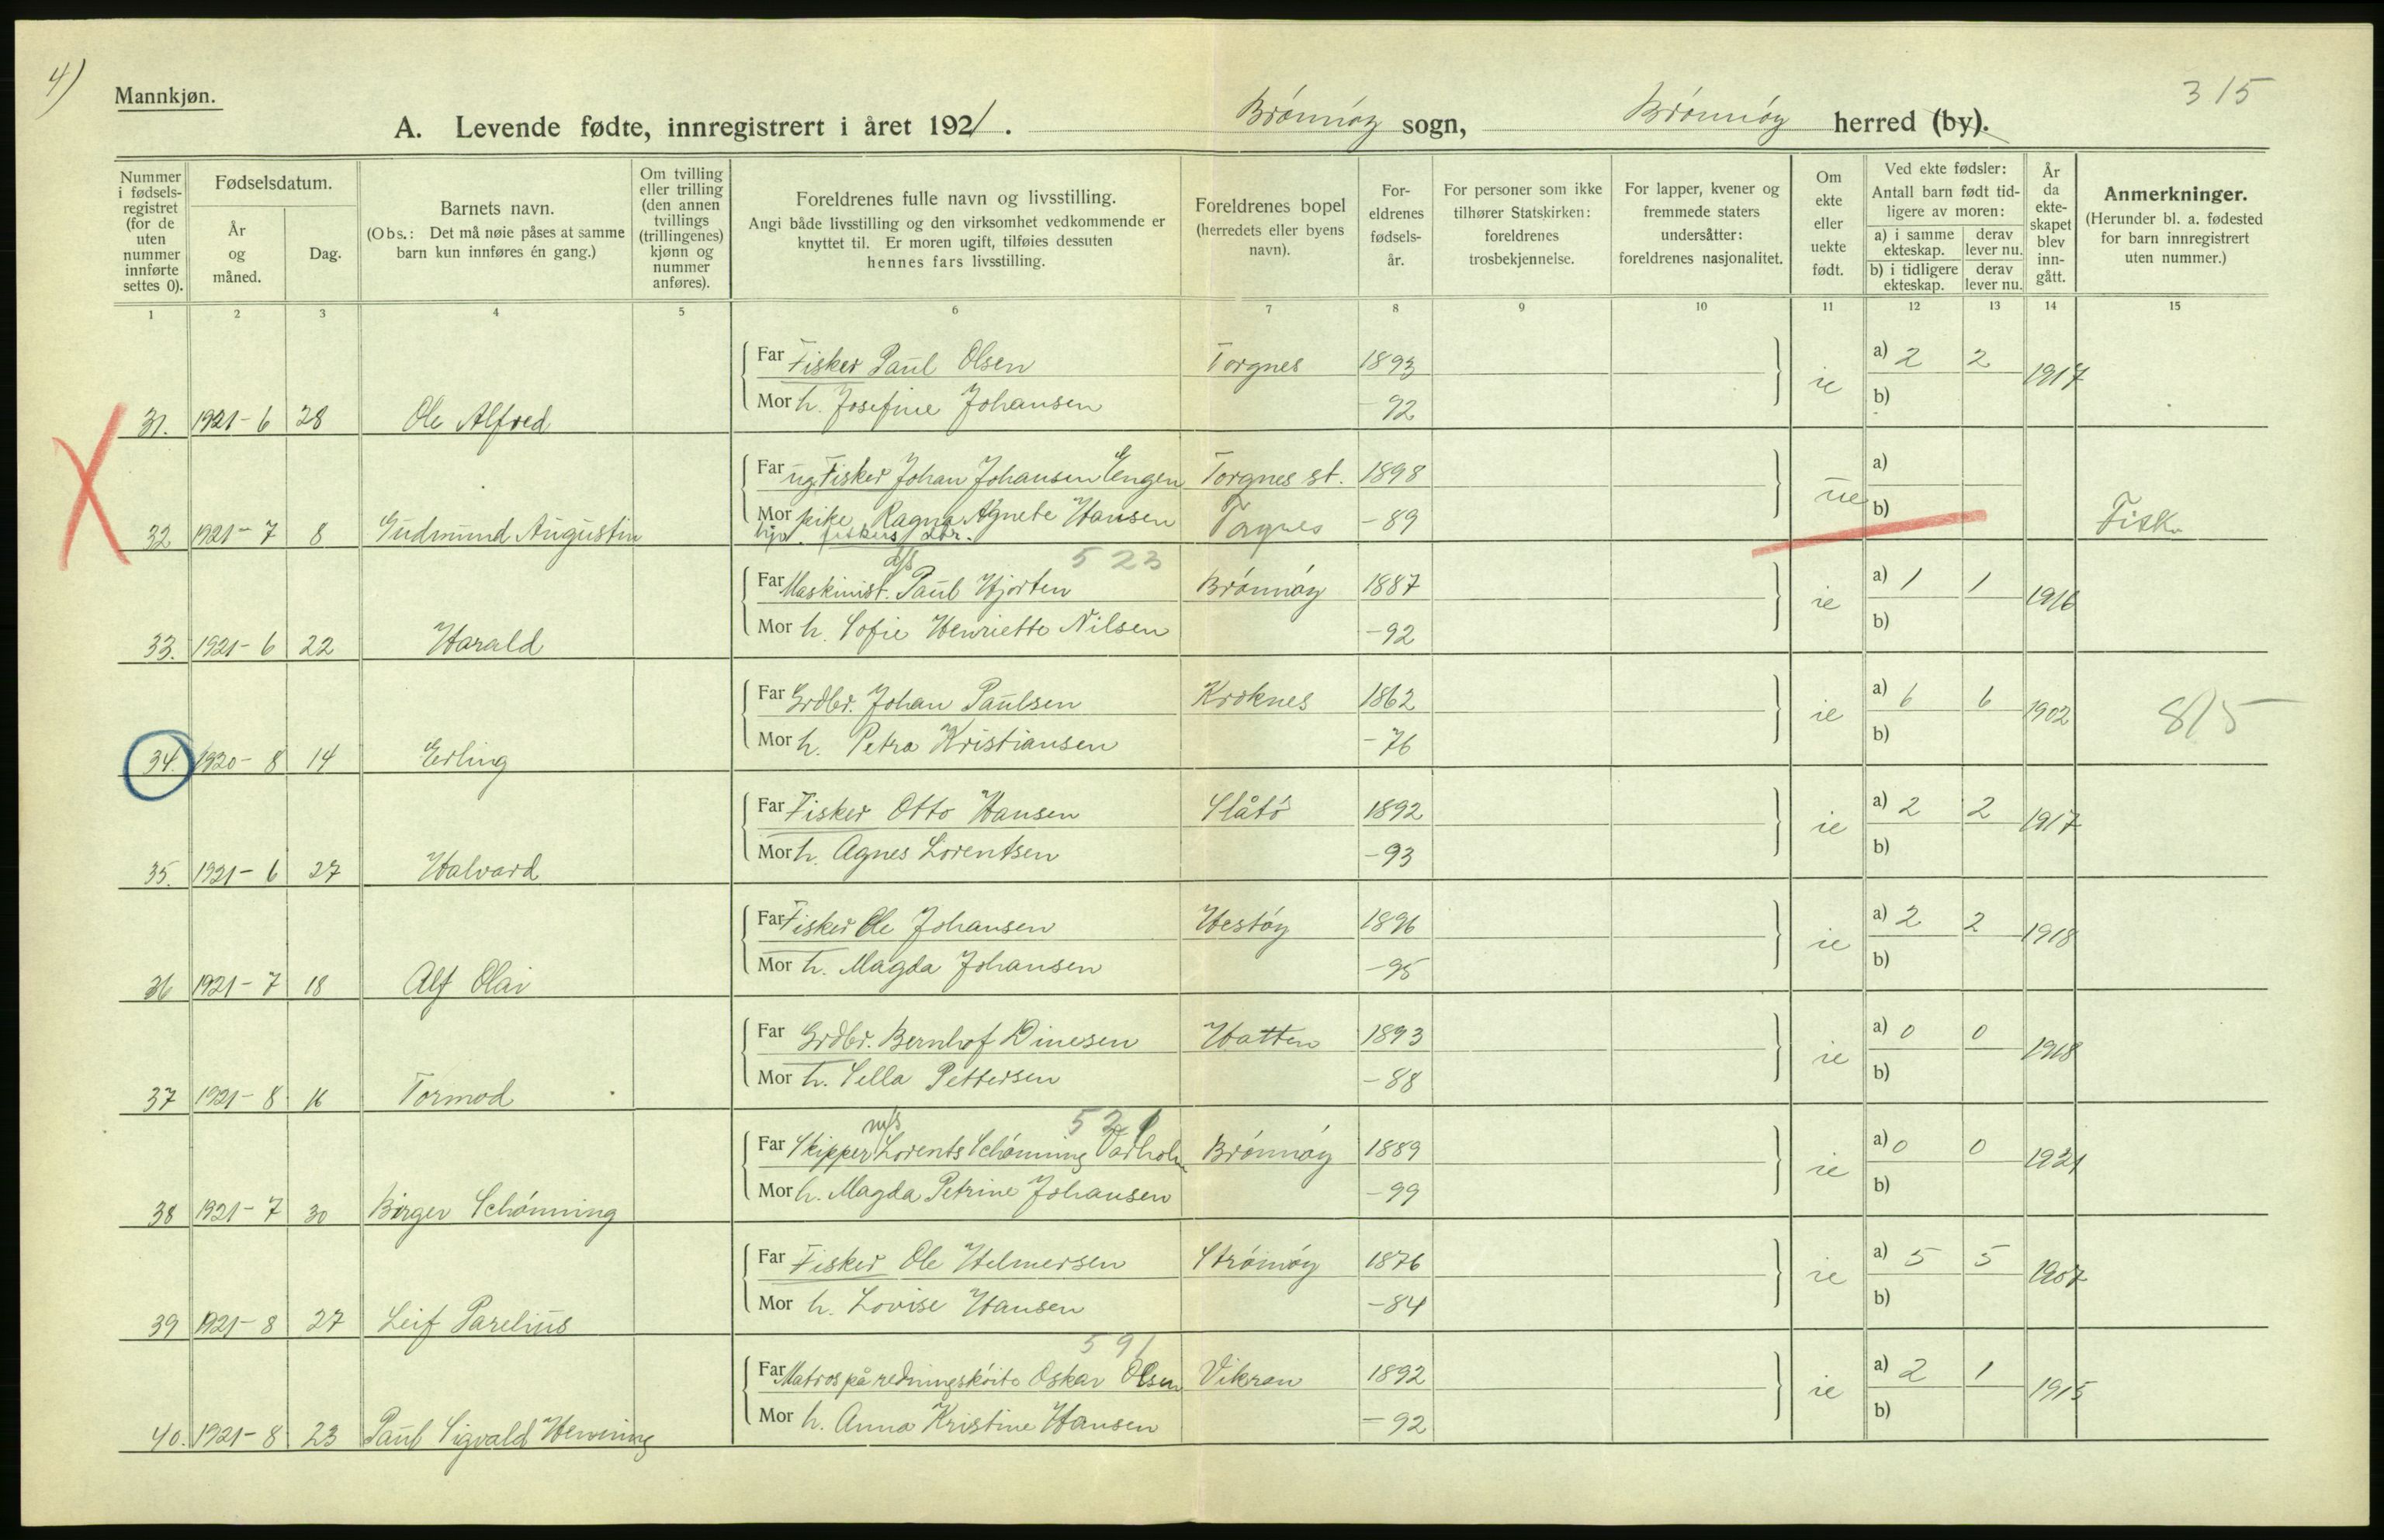 4)
Mannkjøn.
315
A. Levende fødte, innregistrert i året 1921. Brønnøy sogn, Brønnøy herred (by).
Nummer i fødsels-registret (for de uten nummer innførte settes 0).
Fødselsdatum.
År og måned.
Dag.
Barnets navn.
(Obs.: Det må nøie påses at samme barn kun innføres én gang.)
Om tvilling eller trilling (den annen tvillings (trillingenes) kjønn og nummer anføres).
Foreldrenes fulle navn og livsstilling.
Angi både livsstilling og den virksomhet vedkommende er knyttet til. Er moren ugift, tilføies dessuten hennes fars livsstilling.
Foreldrenes bopel (herredets eller byens navn).
For-eldrenes fødsels-år.
For personer som ikke tilhører Statskirken: foreldrenes trosbekjennelse.
For lapper, kvener og fremmede staters undersåtter: foreldrenes nasjonalitet.
Om ekte eller uekte født.
Ved ekte fødsler: Antall barn født tid-ligere av moren:
a) i samme ekteskap. derav lever nu.
b) i tidligere ekteskap. derav lever nu.
År da ekte-skapet blev inn-gått.
Anmerkninger.
(Herunder bl. a. fødested for barn innregistrert uten nummer.)
1 2 3 4 5 6 7 8 9 10 11 12 13 14 15
Far Fisker Paul Olsen Torgnes 1893 a) 2 2
Mor h. Josefine Johansen -92 ie b) 1917
31. 1921-6 28 Ole Alfred
Far ug. Fisker Johan Johansen Engen Torgnes st. 1898 a)
Mor pike Ragna Agnete Hansen Torgnes -89 ue b)
32 1921-7 8 Gudmund Augustin fiskers dtr. Fisk.
523
Far Maskinist d/s Paul Hjorten Brønnøy 1887 a) 1 1
Mor h. Sofie Henriette Nilsen -92 ie b) 1916
33. 1921-6 22 Harald
Far Grdbr. Johan Paulsen Kroknes 1862 a) 6 6
Mor h. Petra Kristiansen -76 ie b) 1902 8/5
34. 1920-8 14 Erling
Far Fisker Otto Hansen Slåtø 1892 a) 2 2
Mor h. Agnes Lorentsen -93 ie b) 1917
35. 1921-6 27 Halvard
Far Fisker Ole Johansen Hestøy 1896 a) 2 2
Mor h. Magda Johansen -95 ie b) 1918
36 1921-7 18 Alf Olai
Far Grdbr. Bernhof Dinesen Hatten 1893 a) 0 0
Mor h. Sella Pettersen -88 ie b) 1918
37 1921-8 16 Tormod
521
Far Skipper m/s Lorents Schønning Varholm Brønnøy 1889 a) 0 0
Mor h. Magda Petrine Johansen -99 ie b) 1921
38 1921-7 30 Birger Schønning
Far Fisker Ole Helmersen Strømøy 1876 a) 5 5
Mor h. Lovise Hansen -84 ie b) 1907
39 1921-8 27 Leif Parelius
591
Far Matros på redningskøite Oskar Olsen Vikran 1892 a) 2 1
Mor h. Anna Kristine Hansen -92 ie b) 1915
40. 1921-8 23 Paul Sigvald Henning